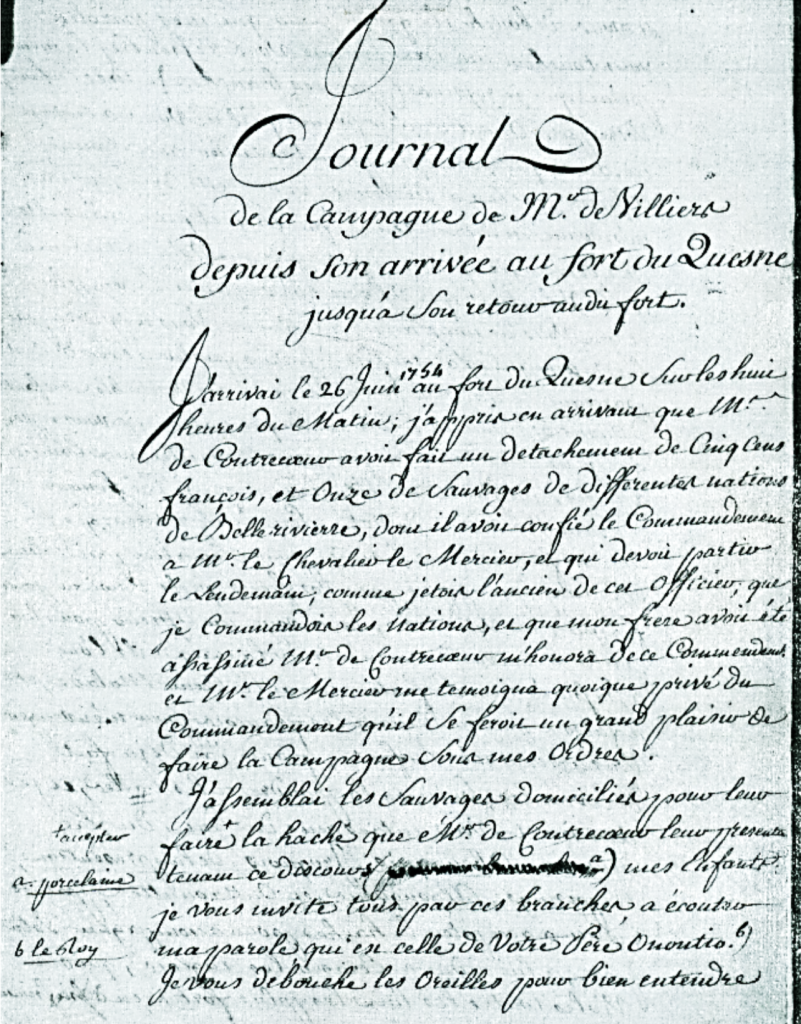 Journal
de la Campagne de Mr. de Villiers
depuis son arrivée au fort du Quesne
jusqu'a son retour audit fort.
J'arrivai le 26 Juin 1754 au fort du Quesne Sur les huit
heures du Matin, j'appris en arrivant que Mr.
de Contrecoeur avoit fait un detachement de Cinq Cens
françois, et Onze de Sauvages de differentes nations
de Belle rivierre, dont il avoit confié le Commandement
a Mr. le Chevalier le Mercier, et qui devoit partir
le Lendemain, comme jetois l'ancien de cet Officier, que
je Commandois les Nations, et que mon frere avoit été
assassiné Mr. de Contrecoeur m'honora de ce Commendemt.
et Mr. le Mercier me temoigna quoique privé du
Commandement qu'il Se feroit un grand plaisir de
faire la Campagne Sous mes Ordres.
J'assemblai les Sauvages domiciliés pour leur
+ accepter
faire + la hache que Mr. de Contrecoeur leur presenta
tenant ce discours a) mes Enfants
a. porcelaine
je vous invite tous par ces branches a écouter
b le Roy
ma parole qui est celle de Votre Pere Onontio. b)
Je vous debouche les Oreilles pour bien entendre